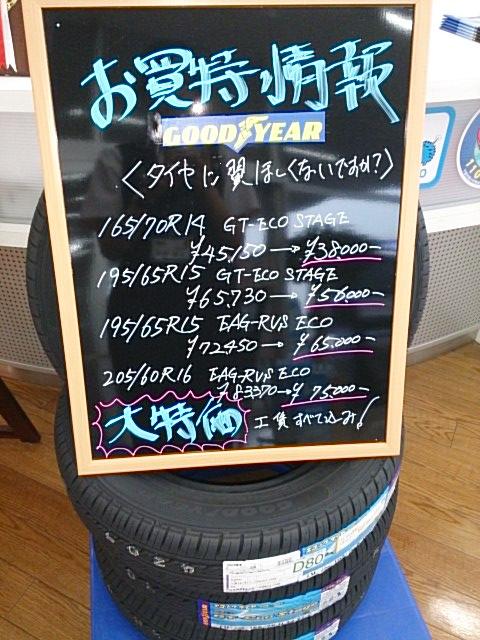 お買特情報
GOODYEAR
〈タイヤに翼ほしくないですか?〉
165/70R14 GT-ECO STAGE
¥45,150→¥38,000-
195/65R15 GT-ECO STAGE
¥65,730→¥56,000-
195/65R15 EAG-RVS ECO
¥72450→¥65,000-
205/60R16 EAG-RVS ECO
¥83370→¥75,000-
大特価 工賃すべて込み!
D80